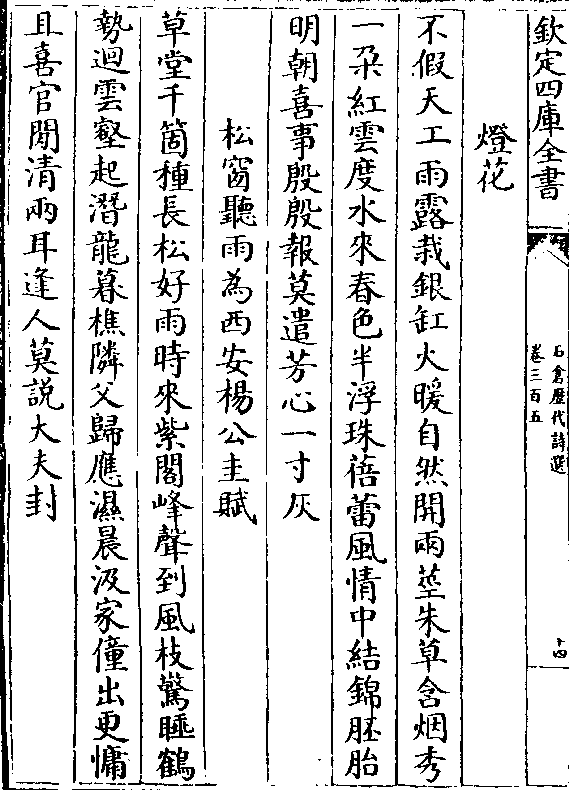 欽定四庫全書
石倉歷代詩選
卷三百五
十四
燈花
不假天工雨露栽銀缸火暖自然開兩莖朱草含烟秀
一朶紅雲度水來春色半浮珠蓓蕾風情中結錦胚胎
明朝喜事殷殷報莫遣芳心一寸灰
松窗聽雨為西安楊公圭賦
草堂千箇種長松好雨時來紫閣峰聲到風枝驚睡鶴
勢迴雲壑起潛龍暮樵隣父歸應濕晨汲家僮出更慵
且喜官閒清兩耳逢人莫説大夫封